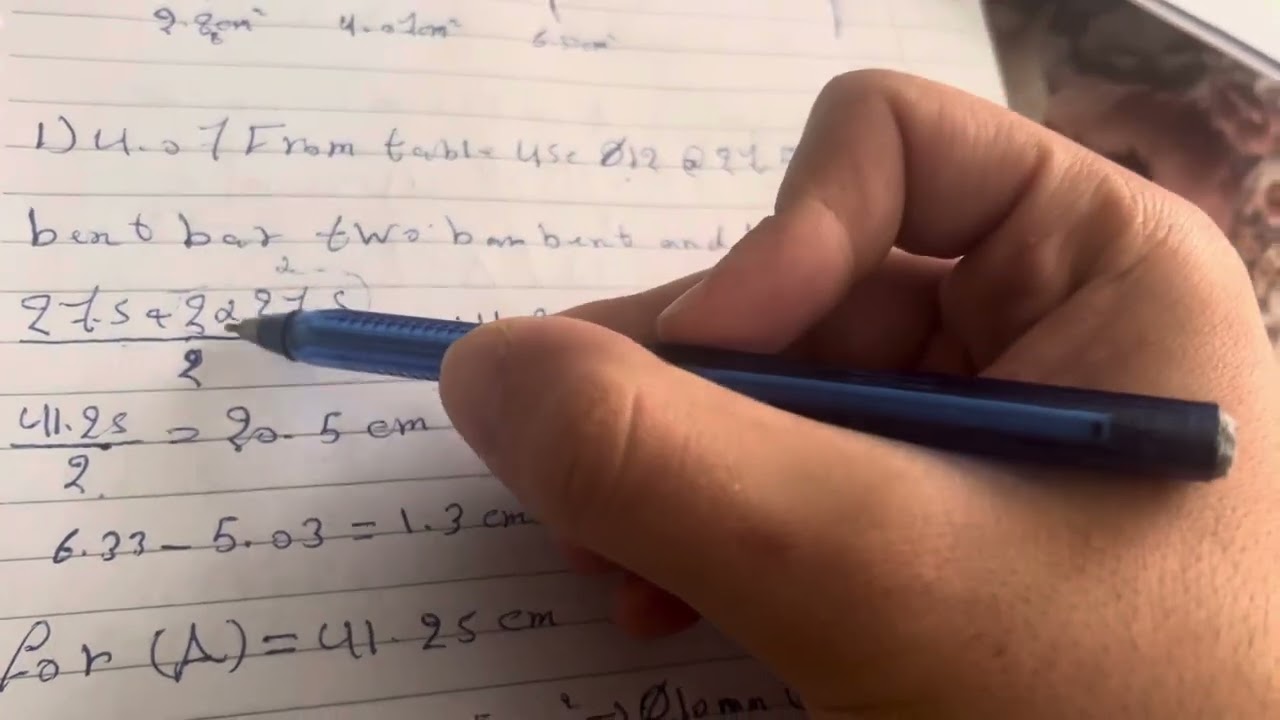 2.8cm² 4.07cm²
1) 4.07 From table use Ø12 @ 27
bent bar two bar bent and
27.5 + 2
2
41.25 = 20.5 cm
2
6.33 - 5.03 = 1.3 cm
for (A) = 41.25 cm
Ø10mm